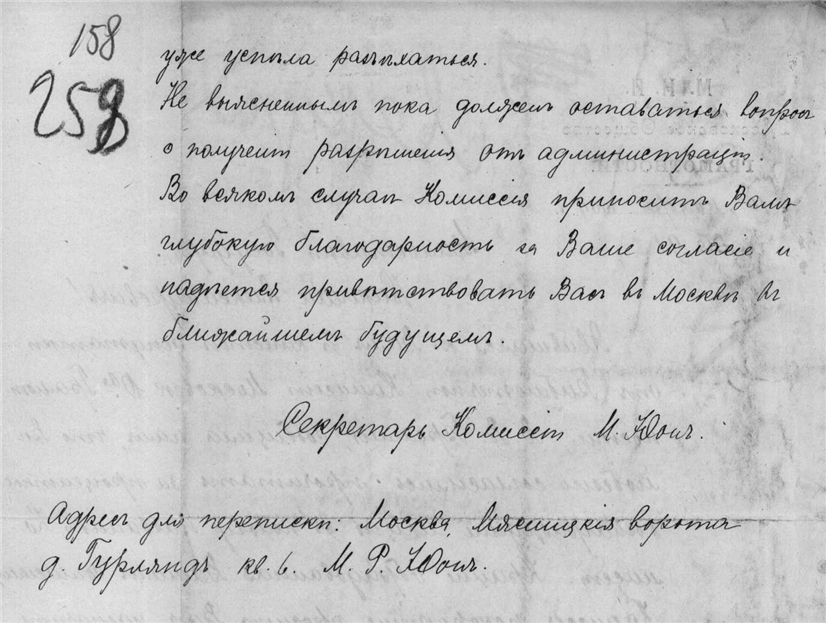 158
259
уже успѣла разъѣхаться.
Не выясненнымъ пока долженъ оставаться вопросъ
о полученіи разрѣшенія отъ администраціи.
Во всякомъ случаѣ Комиссія приноситъ Вамъ
глубокую благодарность за Ваше согласіе и
надѣется привѣтствовать Васъ въ Москвѣ въ
ближайшемъ будущемъ.
Секретарь Комиссіи М. Юонъ.
Адресъ для переписки: Москва, Мясницкія ворота
д. Гурляндъ кв. 6. М. Р. Юонъ.